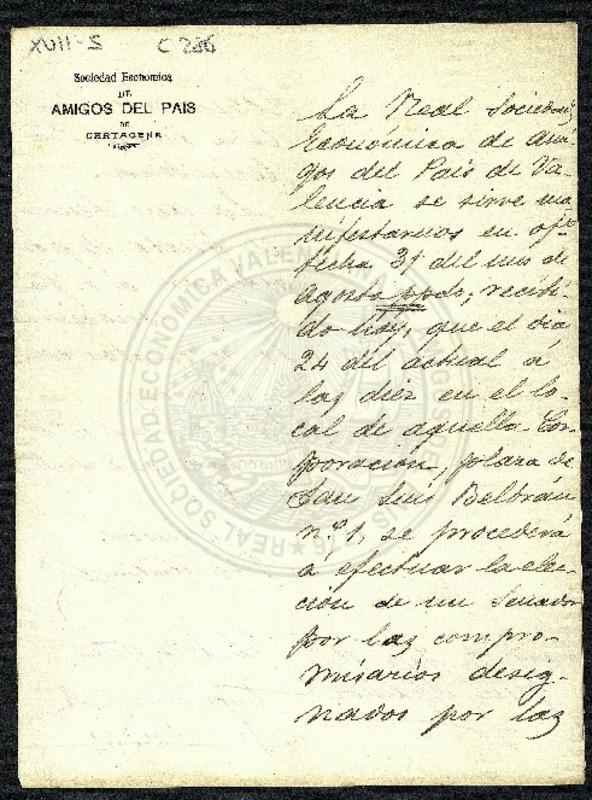 XVII-S C 286
Sociedad Economica
DE
AMIGOS DEL PAIS
DE
CARTAGENA
La Real Sociedad
Económica de Ami-
gos del País de Va-
lencia se sirve ma-
nifestarnos en ofº
fecha 31 del mes de
Agosto ppdo, recibi-
do hoy, que el dia
24 del actual á
las diez en el lo-
cal de aquella Cor-
poración, plaza de
San Luis Beltrán
n.º 1, se procederá
á efectuar la elec-
ción de un Senador
por los compro-
misarios desig-
nados por las
REAL SOCIEDAD ECONOMICA VALENCIANA
1776